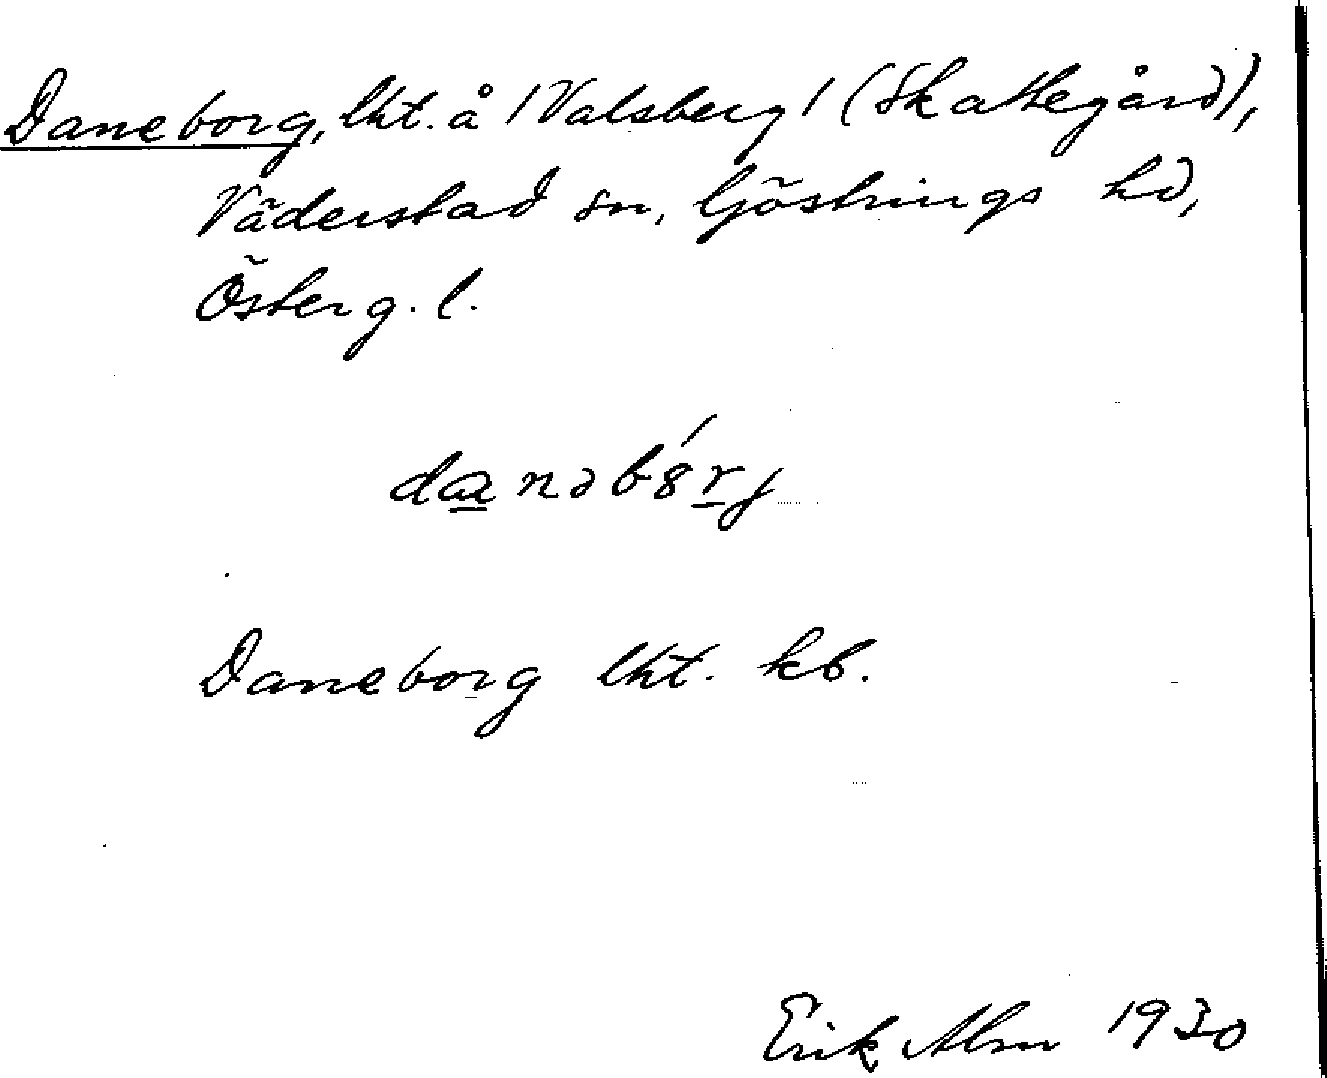 Daneborg, lht. å /Valsberg/ (Skattegård),
Väderstad sn, Göstrings hd,
Österg. l.
danəbórj
Daneborg lht. kb.
Erik Alm 1930